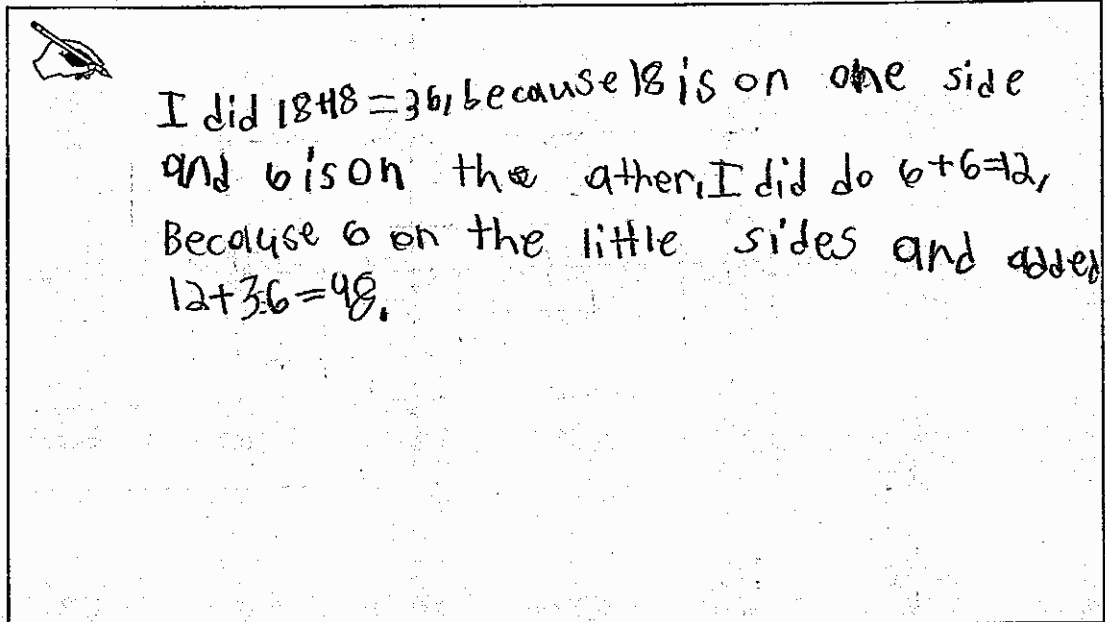 I did 18+18=36, because 18 is on one side
and 6 is on the ather, I did do 6+6=12,
Because 6 on the little sides and added
12+36=48.